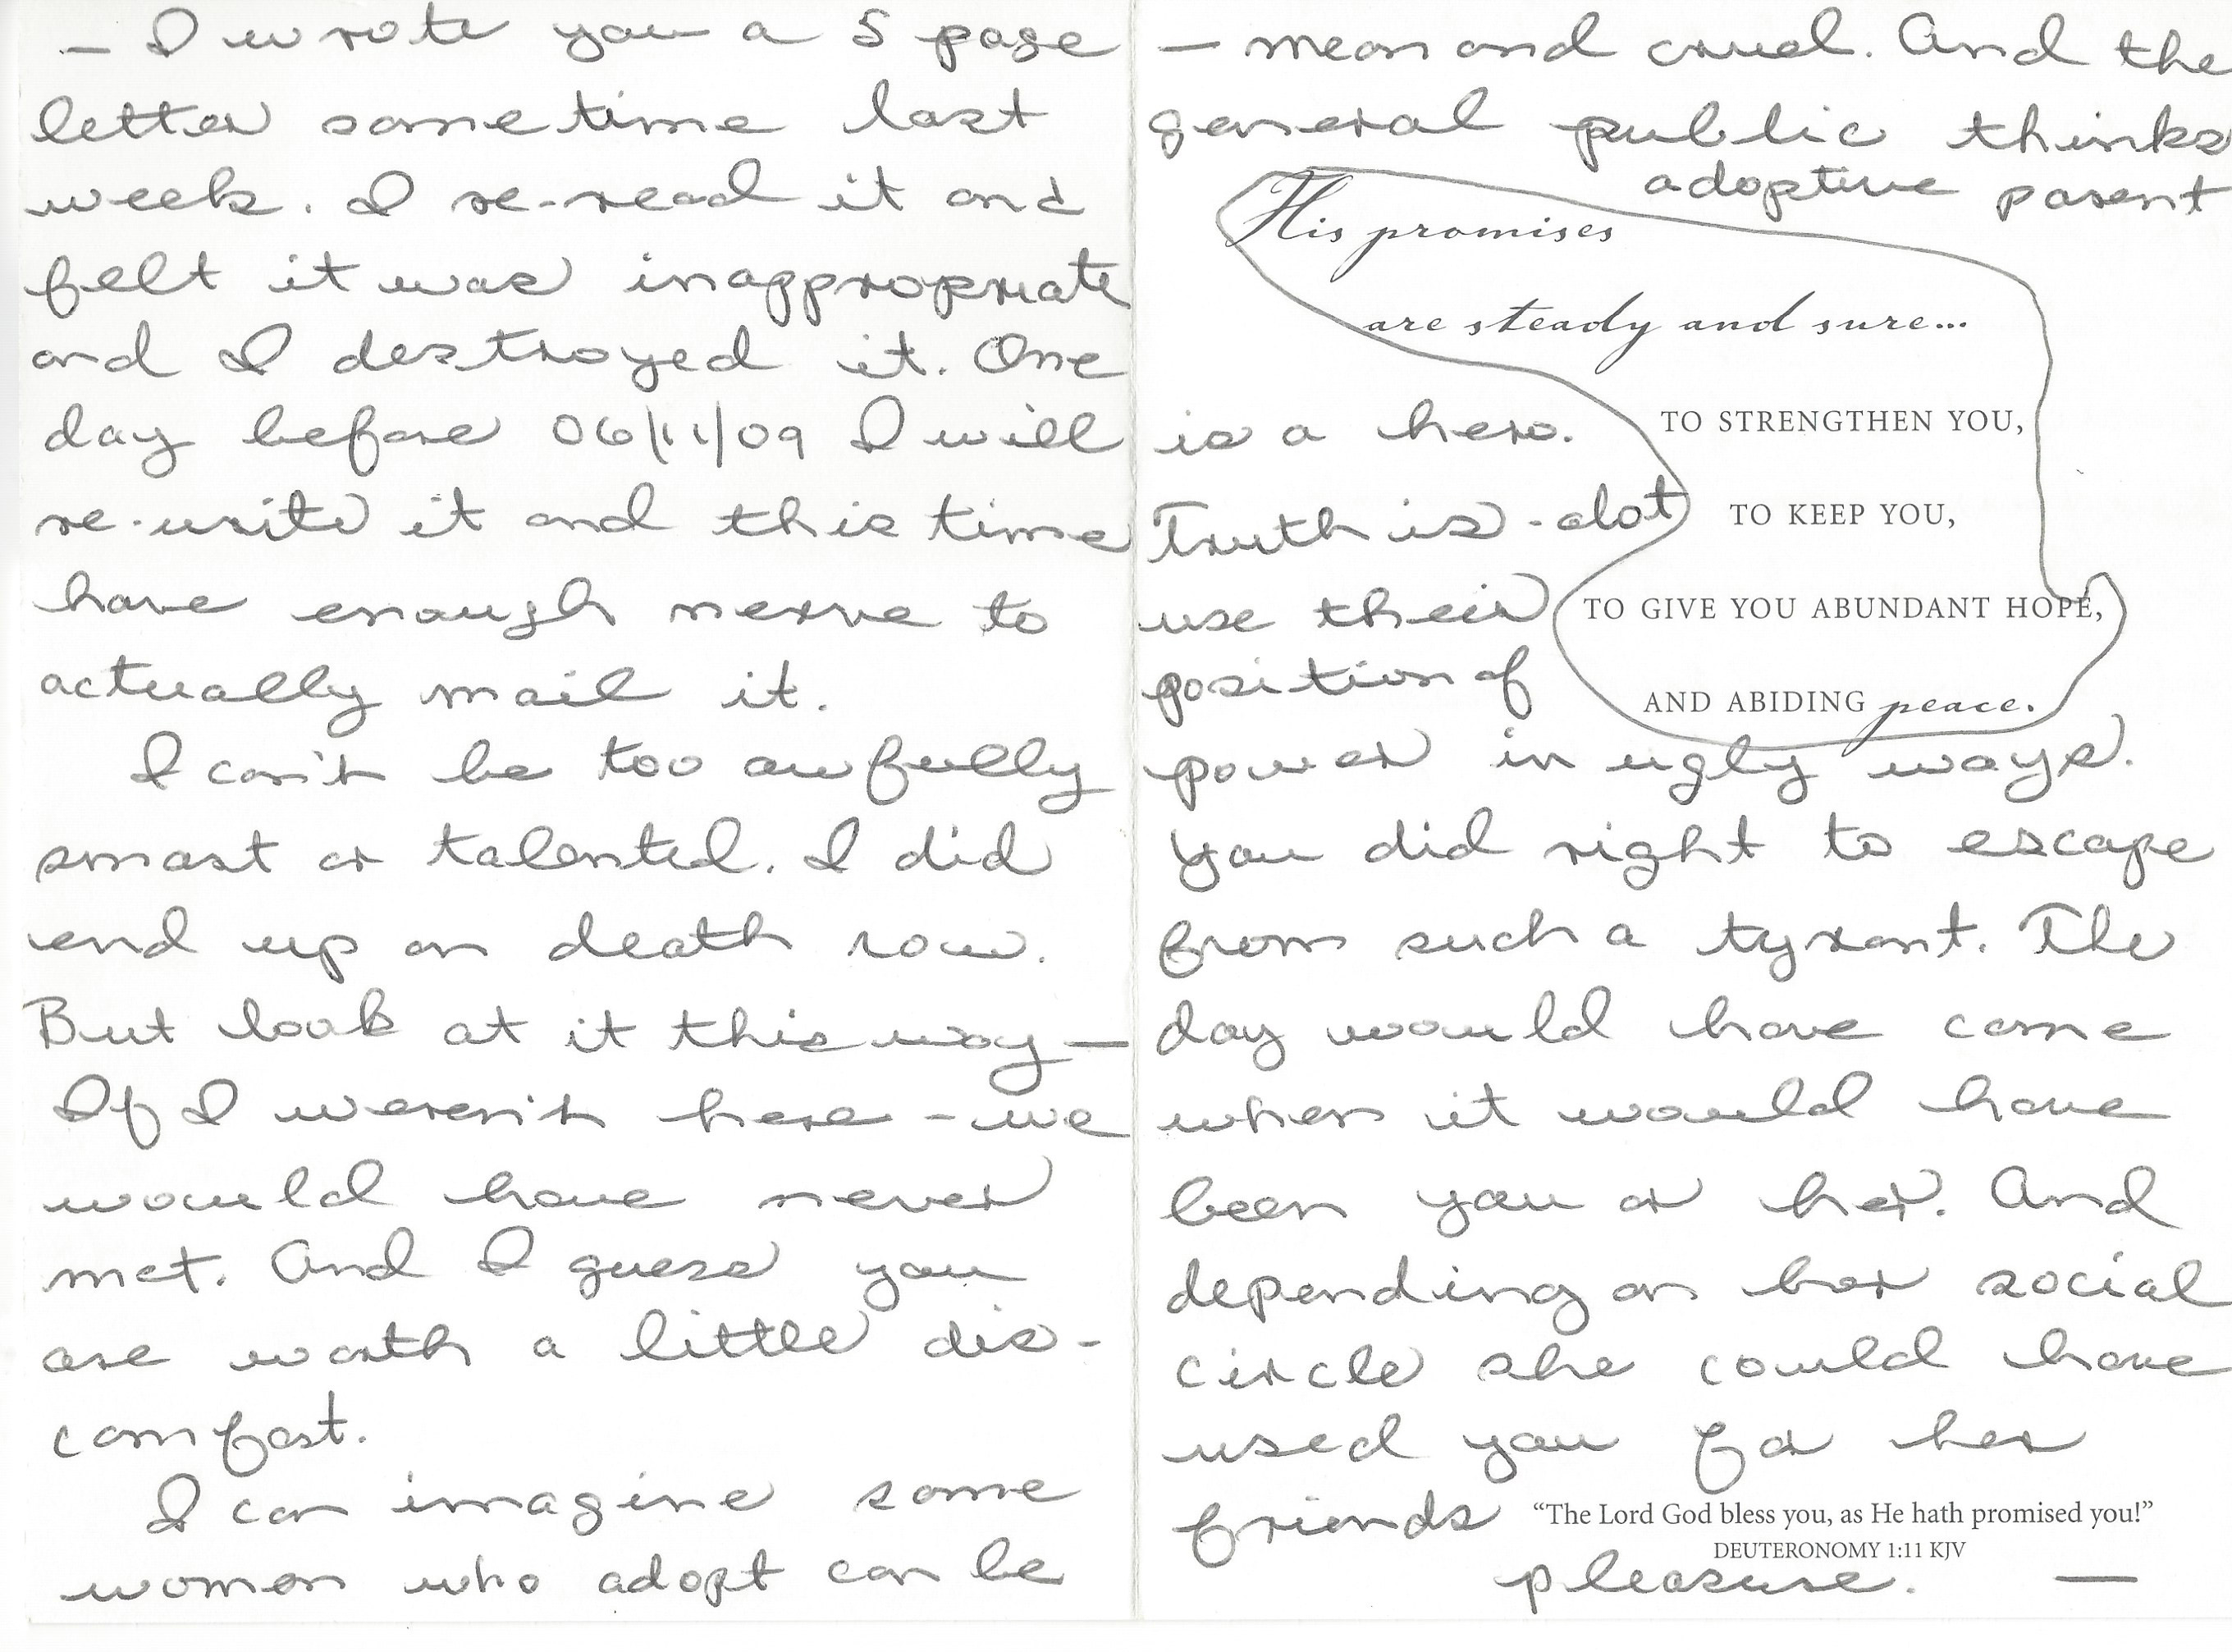 — I wrote you a 5 page
letter sometime last
week. I re-read it and
felt it was inappropriate
and I destroyed it. One
day before 06/11/09 I will
re-write it and this time
have enough nerve to
actually mail it.
I can't be too awfully
smart or talented. I did
end up on death row.
But look at it this way —
If I weren't here - we
would have never
met. And I guess you
are worth a little dis-
comfort.
I can imagine some
women who adopt can be
— mean and cruel. And the
general public thinks
adoptive parent
His promises
are steady and sure...
TO STRENGTHEN YOU,
TO KEEP YOU,
TO GIVE YOU ABUNDANT HOPE,
AND ABIDING peace.
is a hero.
Truth is - alot
use their
position of
power in ugly ways.
You did right to escape
from such a tyrant. The
day would have come
when it would have
been you or her. And
depending on her social
circle she could have
used you for her
friends
“The Lord God bless you, as He hath promised you!”
DEUTERONOMY 1:11 KJV
pleasure. —